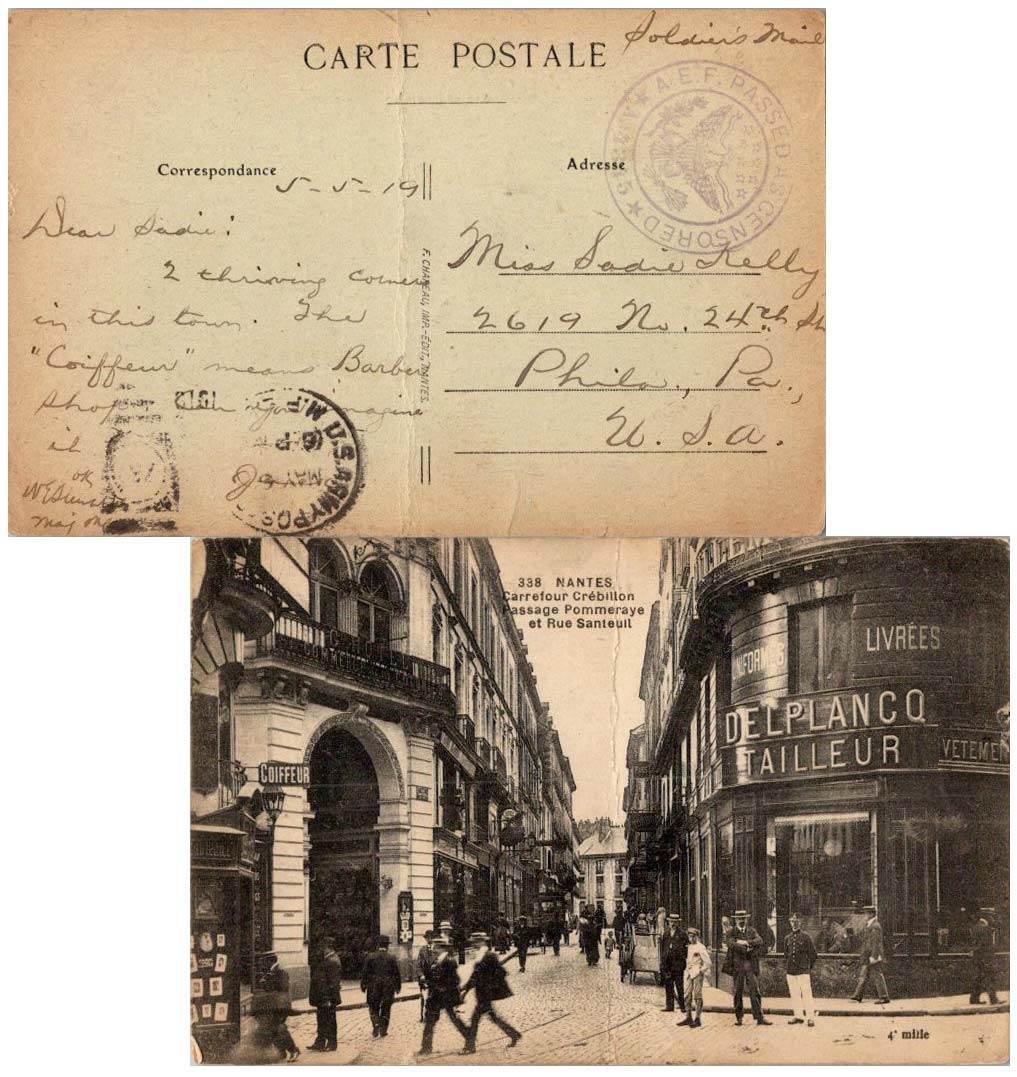 CARTE POSTALE
Soldier's Mail
A.E.F. PASSED CENSORED
Correspondance
Adresse
5-5-19
Dear Sadie:
2 thriving corners
in this town. The
"Coiffeur" means Barber
Shop. Can you imagine
it
OK
Maj
Miss Sadie Kelly
2619 No. 24th St
Phila., Pa.,
U.S.A.
U.S. ARMY POST
MAY
1919
F. CHAPEAU, IMP.-EDIT., NANTES.
338 NANTES
Carrefour Crébillon
Passage Pommeraye
et Rue Santeuil
LIVRÉES
UNIFORMES
DELPLANCQ
TAILLEUR
VETEMEN
COIFFEUR
4e mille